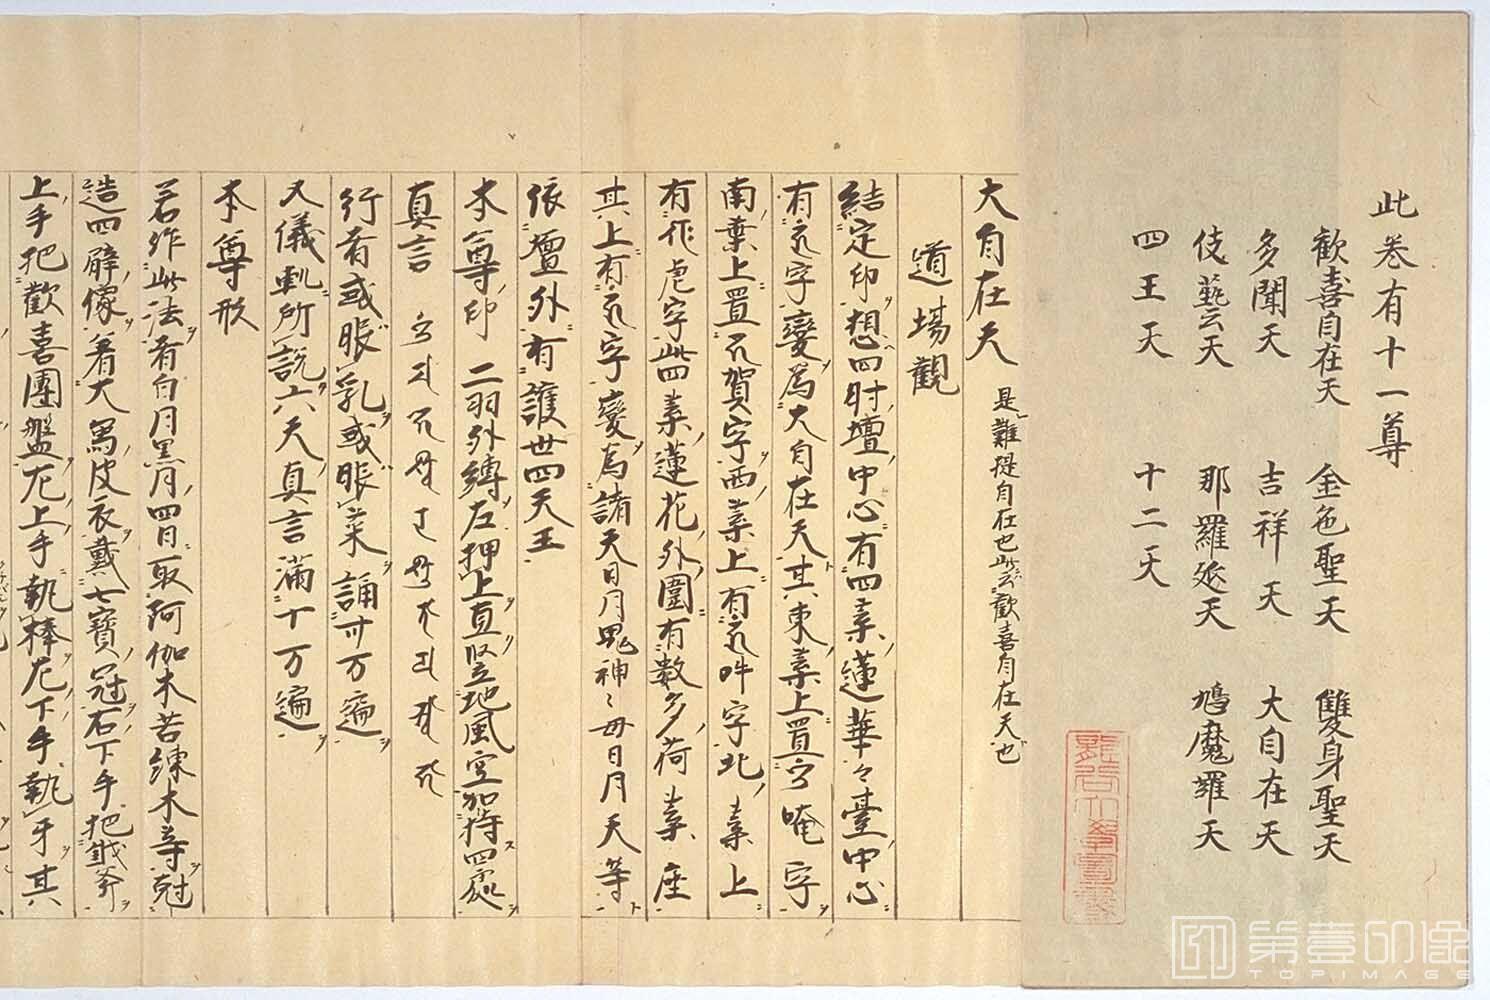 此巻有十一尊
歡喜自在天 金色聖天 雙身聖天
多聞天 吉祥天 大自在天
伎藝天 那羅延天 鳩魔羅天
四王天 十二天
大自在天 是難提自在也此云歡喜自在天也
道場觀
結定印想四肘壇中心有四葉蓮華々臺中心
有字變為大自在天其東葉上置唵字
南葉上置賀字西葉上有吽字北葉上
有字此四葉蓮花外圍有數多荷葉座
其上有字變為諸天日月鬼神々毋日月天等
依壇外有護世四天王
本尊印 二羽外縛左押上直竪地風空加持四處
真言
行者或服乳或服菜誦卅万遍
又儀軌所說六天真言滿十万遍
本尊形
若作此法者白月黑月四日取阿伽木苦練木等剋
造四臂像着大為皮衣戴七寶冠右下手把鉞斧
上手把歡喜團盤左上手執棒左下手執牙其
第壹印像
TOPIMAGE